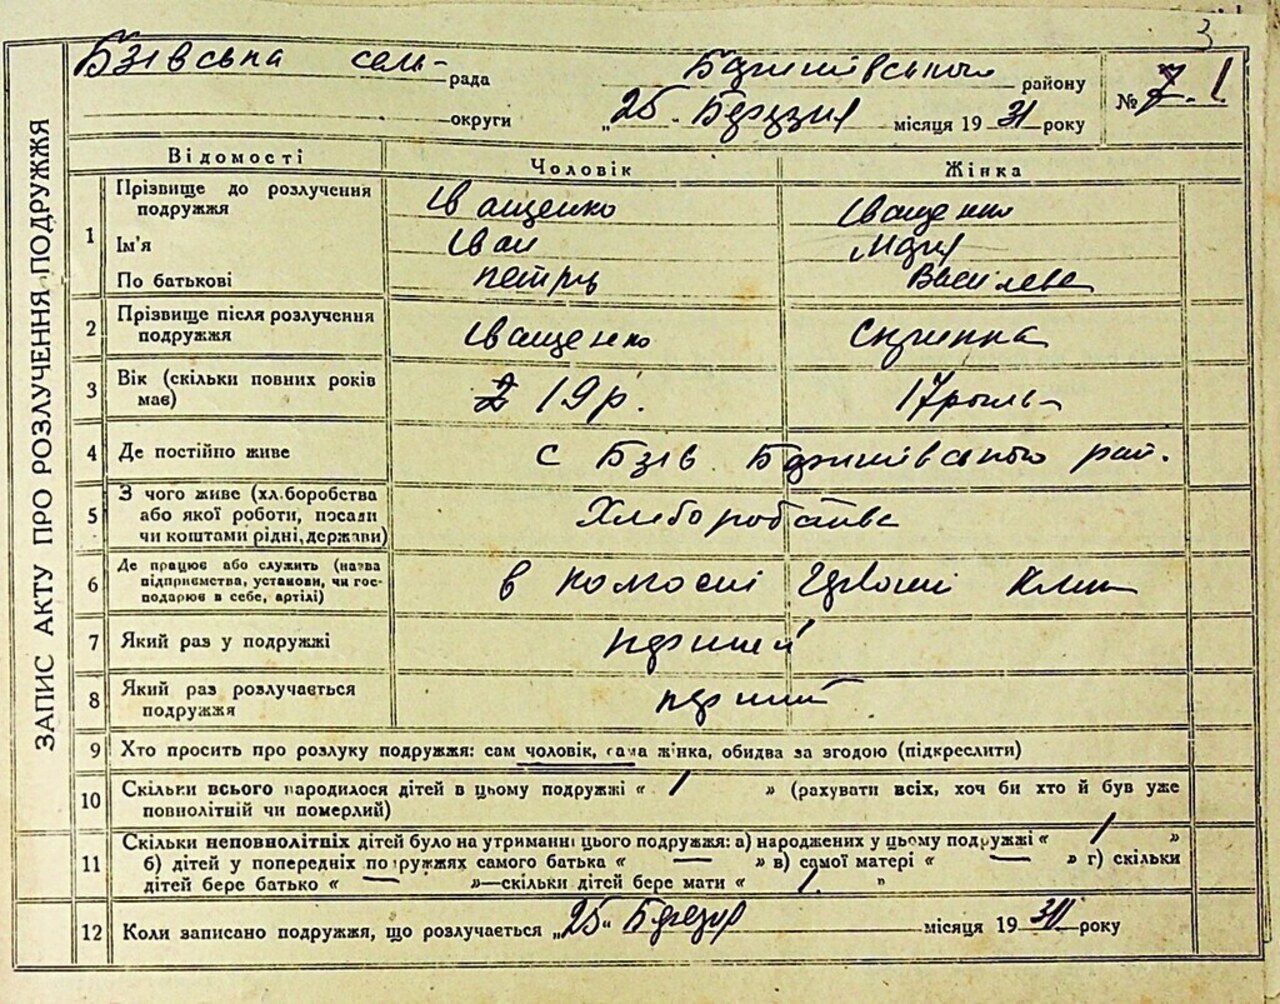 3
Бзівська сель- рада
Баришівського району
№ 7. 1.
округи „25 Березня місяця 19 31 року
ЗАПИС АКТУ ПРО РОЗЛУЧЕННЯ ПОДРУЖЖЯ
Відомості Чоловік Жінка
1 Прізвище до розлучення подружжя Іващенко Іващенко
Ім'я Іван Марія
По батькові петрів Василева
2 Прізвище після розлучення подружжя Іващенко Скрипка
3 Вік (скільки повних років має) 19 р. 17
4 Де постійно живе с Бзів Баришівського рай.
5 З чого живе (хл.боробства
або якої роботи, посади
чи коштами рідні, держави)
Хліборобства
6 Де працює або служить (назва
підприємства, установи, чи гос-
подарює в себе, артілі)
в колгоспі
7 Який раз у подружжі перший
8 Який раз розлучається
подружжя
перший
9 Хто просить про розлуку подружжя: сам чоловік, сама жінка, обидва за згодою (підкреслити)
10 Скільки всього народилося дітей в цьому подружжі « 1 » (рахувати всіх, хоч би хто й був уже
повнолітній чи померлий)
11 Скільки неповнолітніх дітей було на утриманні цього подружжя: а) народжених у цьому подружжі « 1 »
б) дітей у попередніх подружжях самого батька « — » в) самої матері « — » г) скільки
дітей бере батько « — »—скільки дітей бере мати « 1. "
12 Коли записано подружжя, що розлучається „25" місяця 19 31 року